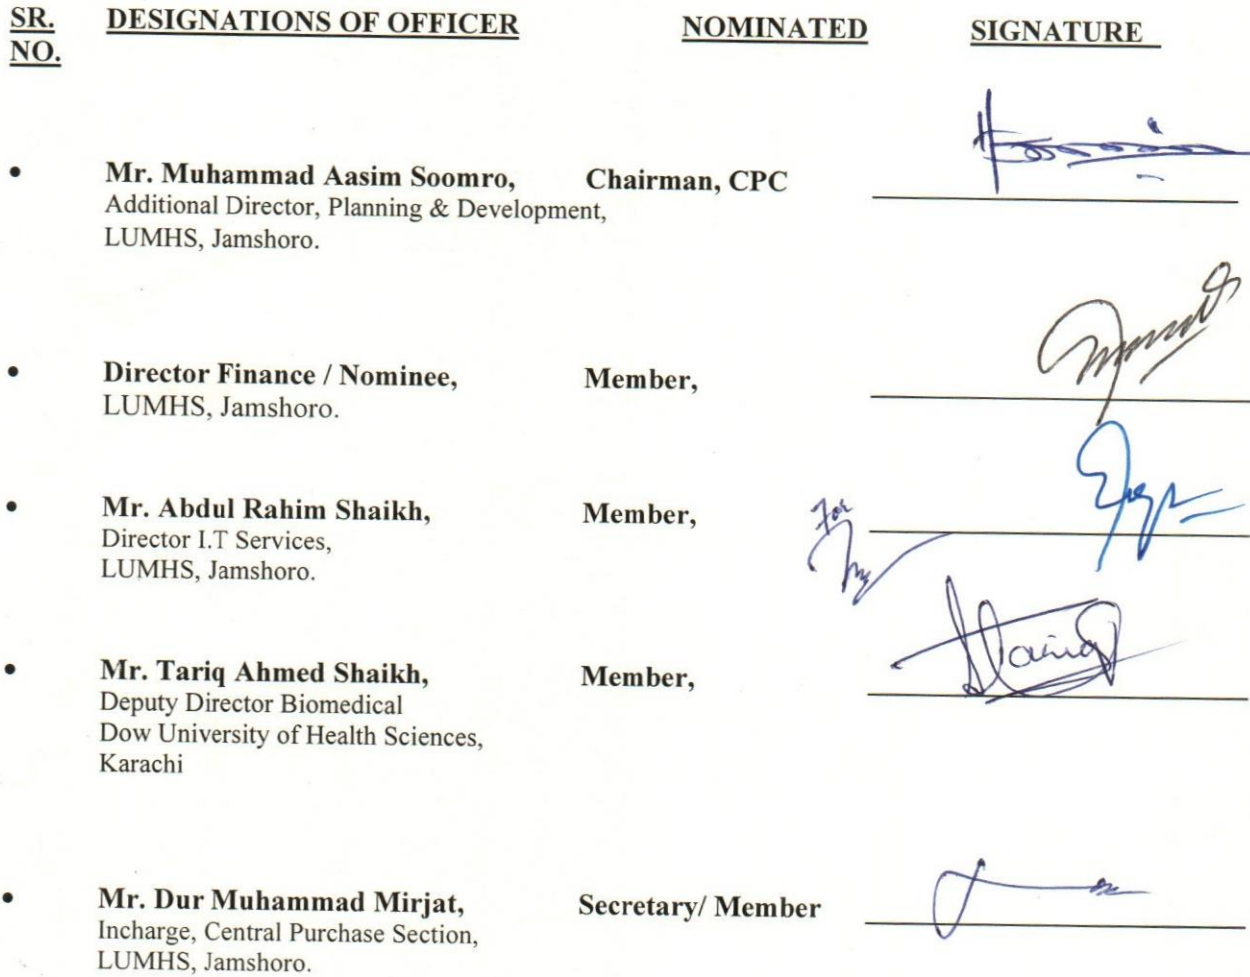 SR. NO. DESIGNATIONS OF OFFICER NOMINATED SIGNATURE
• Mr. Muhammad Aasim Soomro, Chairman, CPC
Additional Director, Planning & Development,
LUMHS, Jamshoro.
• Director Finance / Nominee, Member,
LUMHS, Jamshoro.
• Mr. Abdul Rahim Shaikh, Member, For
Director I.T Services,
LUMHS, Jamshoro.
• Mr. Tariq Ahmed Shaikh, Member,
Deputy Director Biomedical
Dow University of Health Sciences,
Karachi
• Mr. Dur Muhammad Mirjat, Secretary/ Member
Incharge, Central Purchase Section,
LUMHS, Jamshoro.